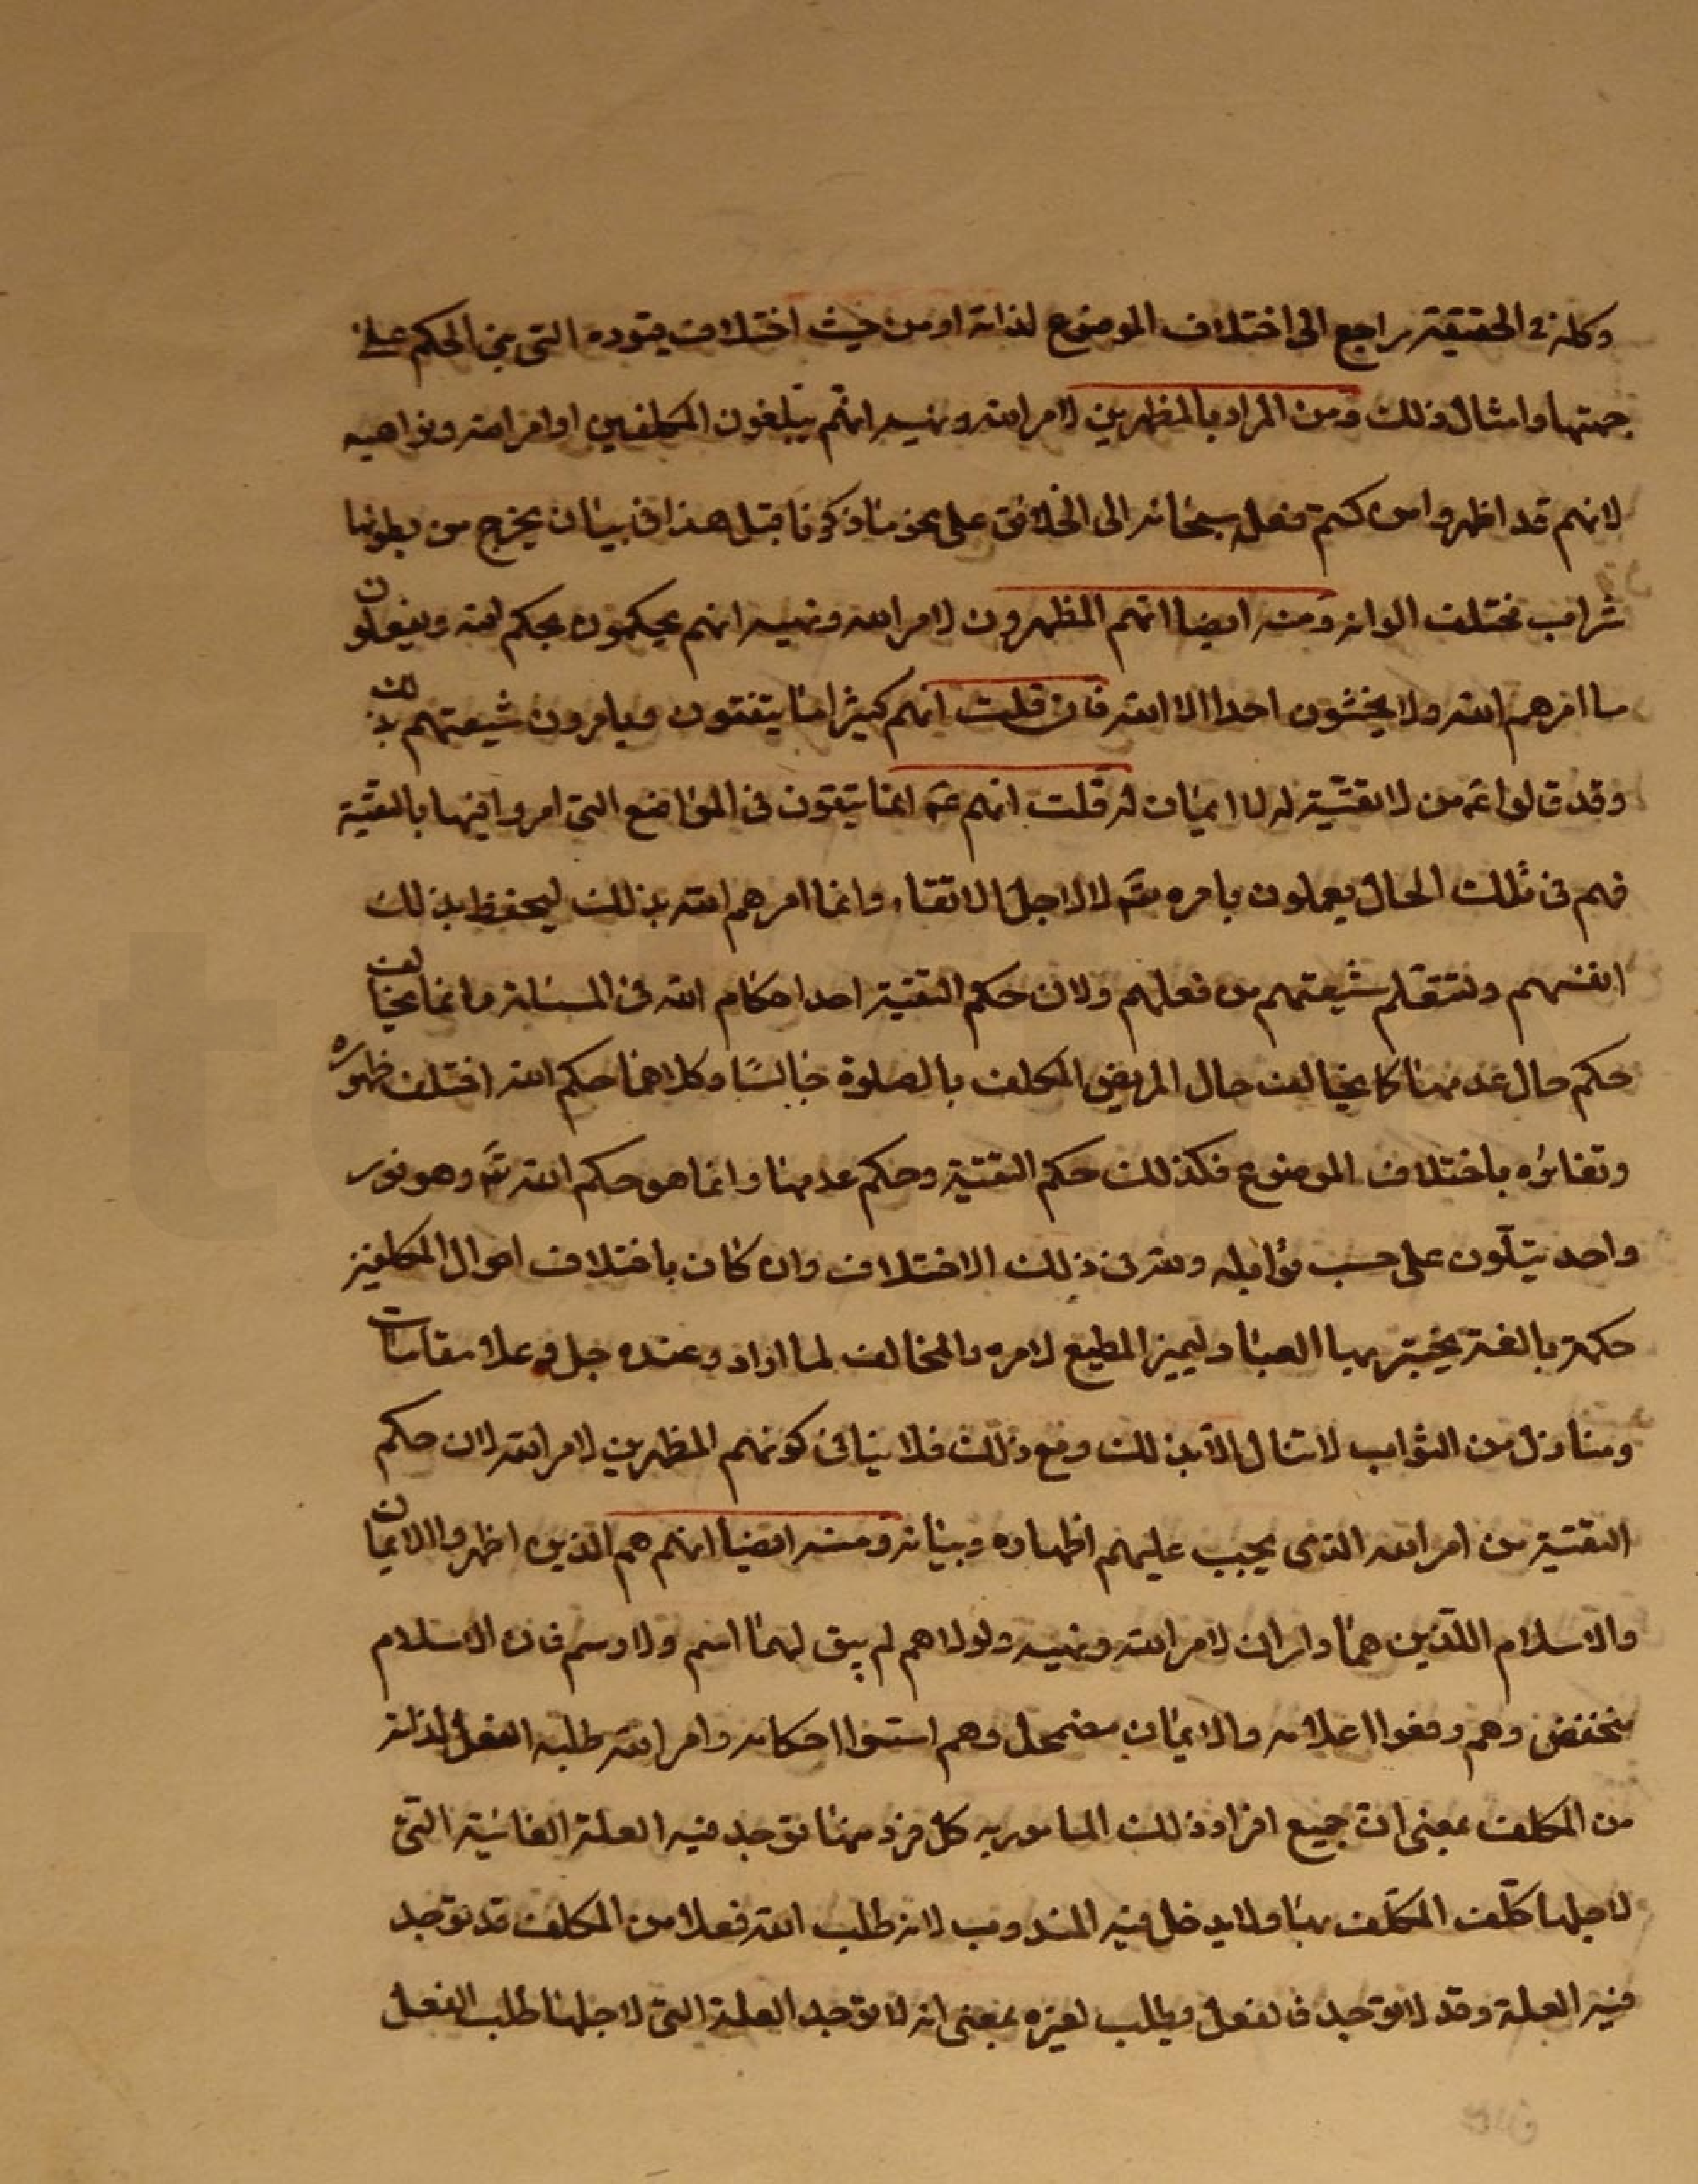 وكله في الحقيقة راجع الى اختلاف الموضوع لذاته او من حيث اختلاف قيوده التى بنى الحكم على
جهتها وامثال ذلك ومن المراد بالمظهرين لامر الله ونهيه انهم يبلغون المكلفين اوامر الله ونواهيه
لانهم قد اظهروا امر الله فعله سبحانه الى الخلائق على نحو ما ذكرنا قبل هذا فى بيان يخرج من بطونها
شراب مختلف الوانه ومنه ايضا انهم المظهرون لامر الله ونهيه انهم يحكمون بحكم الله ويفعلون
ما امرهم الله ولا يخشون احدا الا الله فان قلت انهم كثيرا ما يتقون ويامرون شيعتهم بذلك
وقد قالوا ع من لا تقية له لا ايمان له قلت انهم ع انما يتقون فى المواضع التى امروا فيها بالتقية
فهم فى تلك الحال يعملون بامره تع لا لاجل الاتقاء وانما امرهم الله بذلك ليحفظ بذلك
انفسهم ولتتعلم شيعتهم من فعلهم ولان حكم التقية احد احكام الله فى المسئلة وانما يخالف
حكم حال عدمها كما يخالف حال المريض المكلف بالصلوة جالسًا وكلاهما حكم الله اختلف ظهوره
وتغايره باختلاف الموضوع فكذلك حكم التقية وحكم عدمها وانما هو حكم الله تع وهو نور
واحد يتلّون على حسب قوابله ولله فى ذلك الاختلاف وان كان باختلاف احوال المكلفين
حكمة بالغة يختبر بها العباد وليميز المطيع لامره والمخالف لما اراد وعنده جل وعلا مقامات
ومنازل من الثواب لا تنال الا بذلك ومع ذلك فلا ينافى كونهم المظهرين لامر الله لان حكم
التقية من امر الله الذى يجب عليهم اظهاره وبيانه ومنه ايضا انهم هم الذين اظهروا الايمان
والاسلام اللذين هما داران لامر الله ونهيه ولولاهم لم يبق لهما اسم ولا رسم فان الاسلام
منخفض وهم رفعوا اعلامه والايمان مضمحل وهم استسوا احكامه وامر الله طلبه الفعل لذاته
من المكلف بمعنى انّ جميع افراد ذلك المامور به كل فرد منها توجد فيه العلة الغائية التى
لاجلها كلّف المكلّف بها ولا يدخل فيه المندوب لانه طلب الله فعلا من المكلف قد توجد
فيه العلة وقد لا توجد فالفعل ويطلب لغيره بمعنى انه لا توجد العلة التى لاجلها طلب الفعل